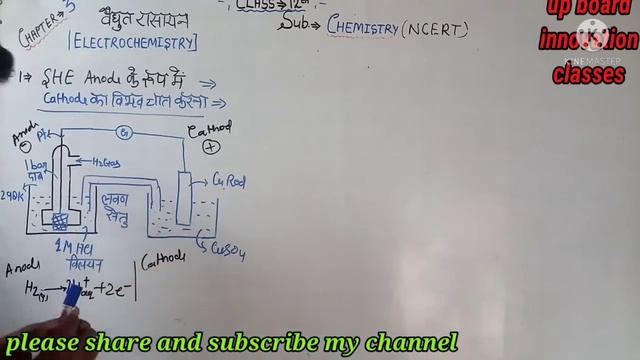 CHAPTER → 3
वैद्युत रासायन
[ELECTROCHEMISTRY]
-: CLASS → 12th :-
Sub. → CHEMISTRY (NCERT)
up board
innovation
classes
KINEMASTER
1→ SHE Anode के रूप में ⇒
Cathode का विभव ज्ञात करना ⇒
Anode
Pt
H2 Gas
1 bar
दाब
298K
लवण
सेतु
1M HCl
विलयन
Cathod
Cu Rod
CuSO4
Anode
Cathode
H2(g) → 2H+ aq + 2e-
please share and subscribe my channel